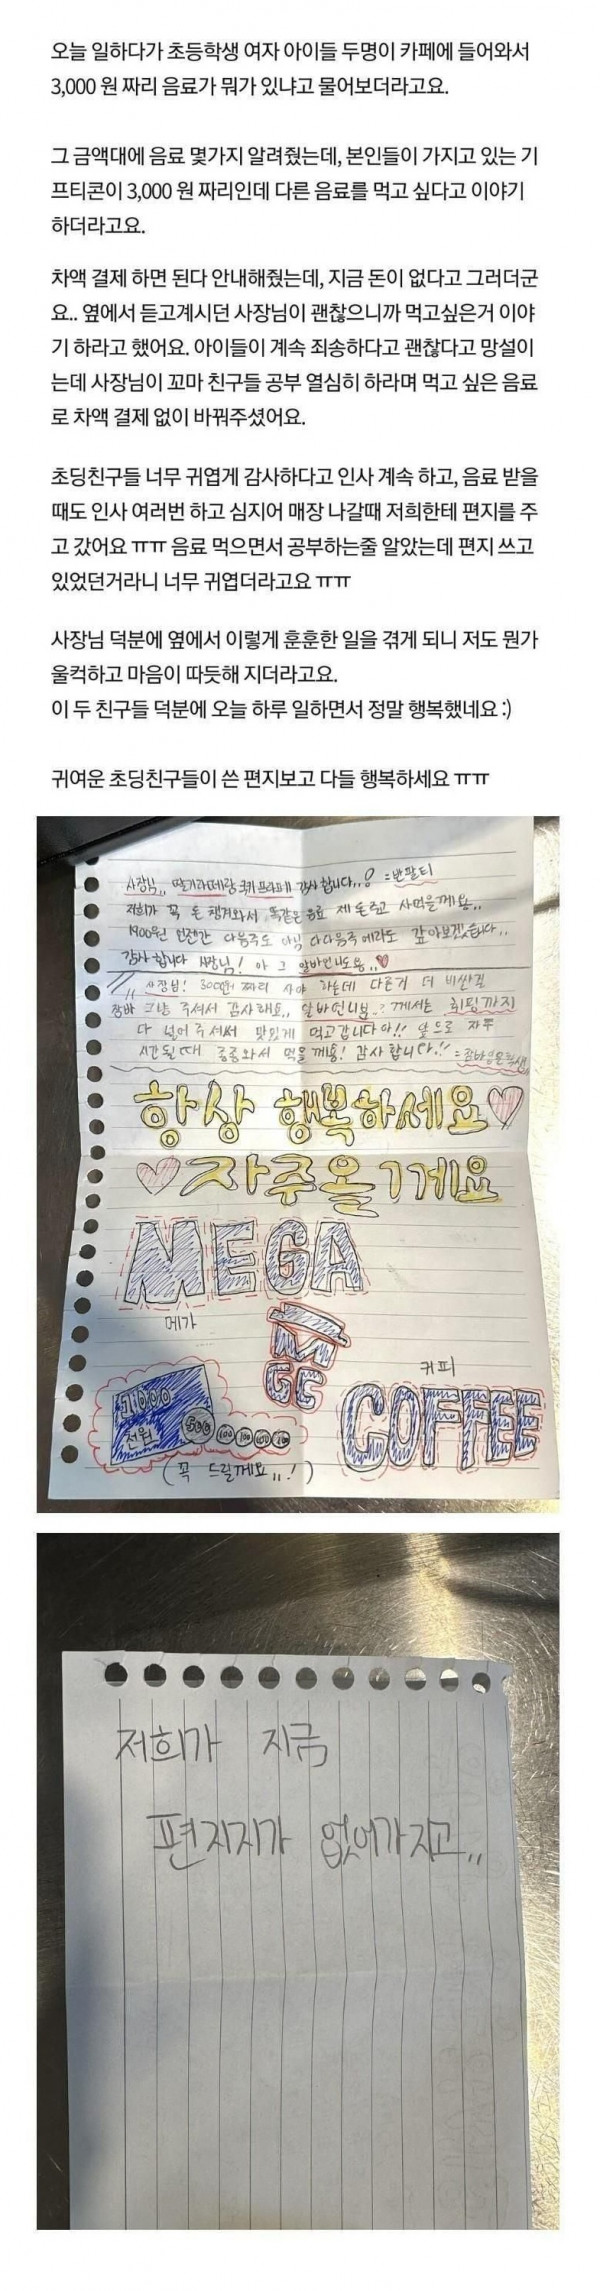 오늘 일하다가 초등학생 여자 아이들 두명이 카페에 들어와서
3,000 원 짜리 음료가 뭐가 있냐고 물어보더라고요.
그 금액대에 음료 몇가지 알려줬는데, 본인들이 가지고 있는 기
프티콘이 3,000 원 짜리인데 다른 음료를 먹고 싶다고 이야기
하더라고요.
차액 결제 하면 된다 안내해줬는데, 지금 돈이 없다고 그러더군
요.. 옆에서 듣고계시던 사장님이 괜찮으니까 먹고싶은거 이야
기 하라고 했어요. 아이들이 계속 죄송하다고 괜찮다고 망설이
는데 사장님이 꼬마 친구들 공부 열심히 하라며 먹고 싶은 음료
로 차액 결제 없이 바꿔주셨어요.
초딩친구들 너무 귀엽게 감사하다고 인사 계속 하고, 음료 받을
때도 인사 여러번 하고 심지어 매장 나갈때 저희한테 편지를 주
고 갔어요 ㅠㅠ 음료 먹으면서 공부하는줄 알았는데 편지 쓰고
있었던거라니 너무 귀엽더라고요 ㅠㅠ
사장님 덕분에 옆에서 이렇게 훈훈한 일을 겪게 되니 저도 뭔가
울컥하고 마음이 따듯해 지더라고요.
이 두 친구들 덕분에 오늘 하루 일하면서 정말 행복했네요 :)
귀여운 초딩친구들이 쓴 편지보고 다들 행복하세요 ㅠㅠ
사장님,, 딸기라떼랑 쿠키프라페 감사합니다,,! =반팔티
저희가 꼭 돈 챙겨와서 똑같은 음료 제 돈주고 사먹을께요..
1900원 언젠간 다음주도 아님 다다음주에라도 갚아보겠습니다..
감사합니다 사장님! 아 그 알바언니도용,,♥
사장님! 3000원 짜리 사야 하는데 다른거 더 비싼걸
그냥 주셔서 감사해요,, 알바언니님 께서는 휘핑까지
다 넣어주셔서 맛있게 먹고갑니다아!! 앞으로 자주
시간될때 종종와서 먹을께용! 감사합니다!!
항상 행복하세요♡
♡자주올게요
MEGA
메가
M
GC
커피
COFFEE
1000
천원
500
100 100 100 100
(꼭 드릴께요,,!)
저희가 지금
편지지가 없어가지고,,